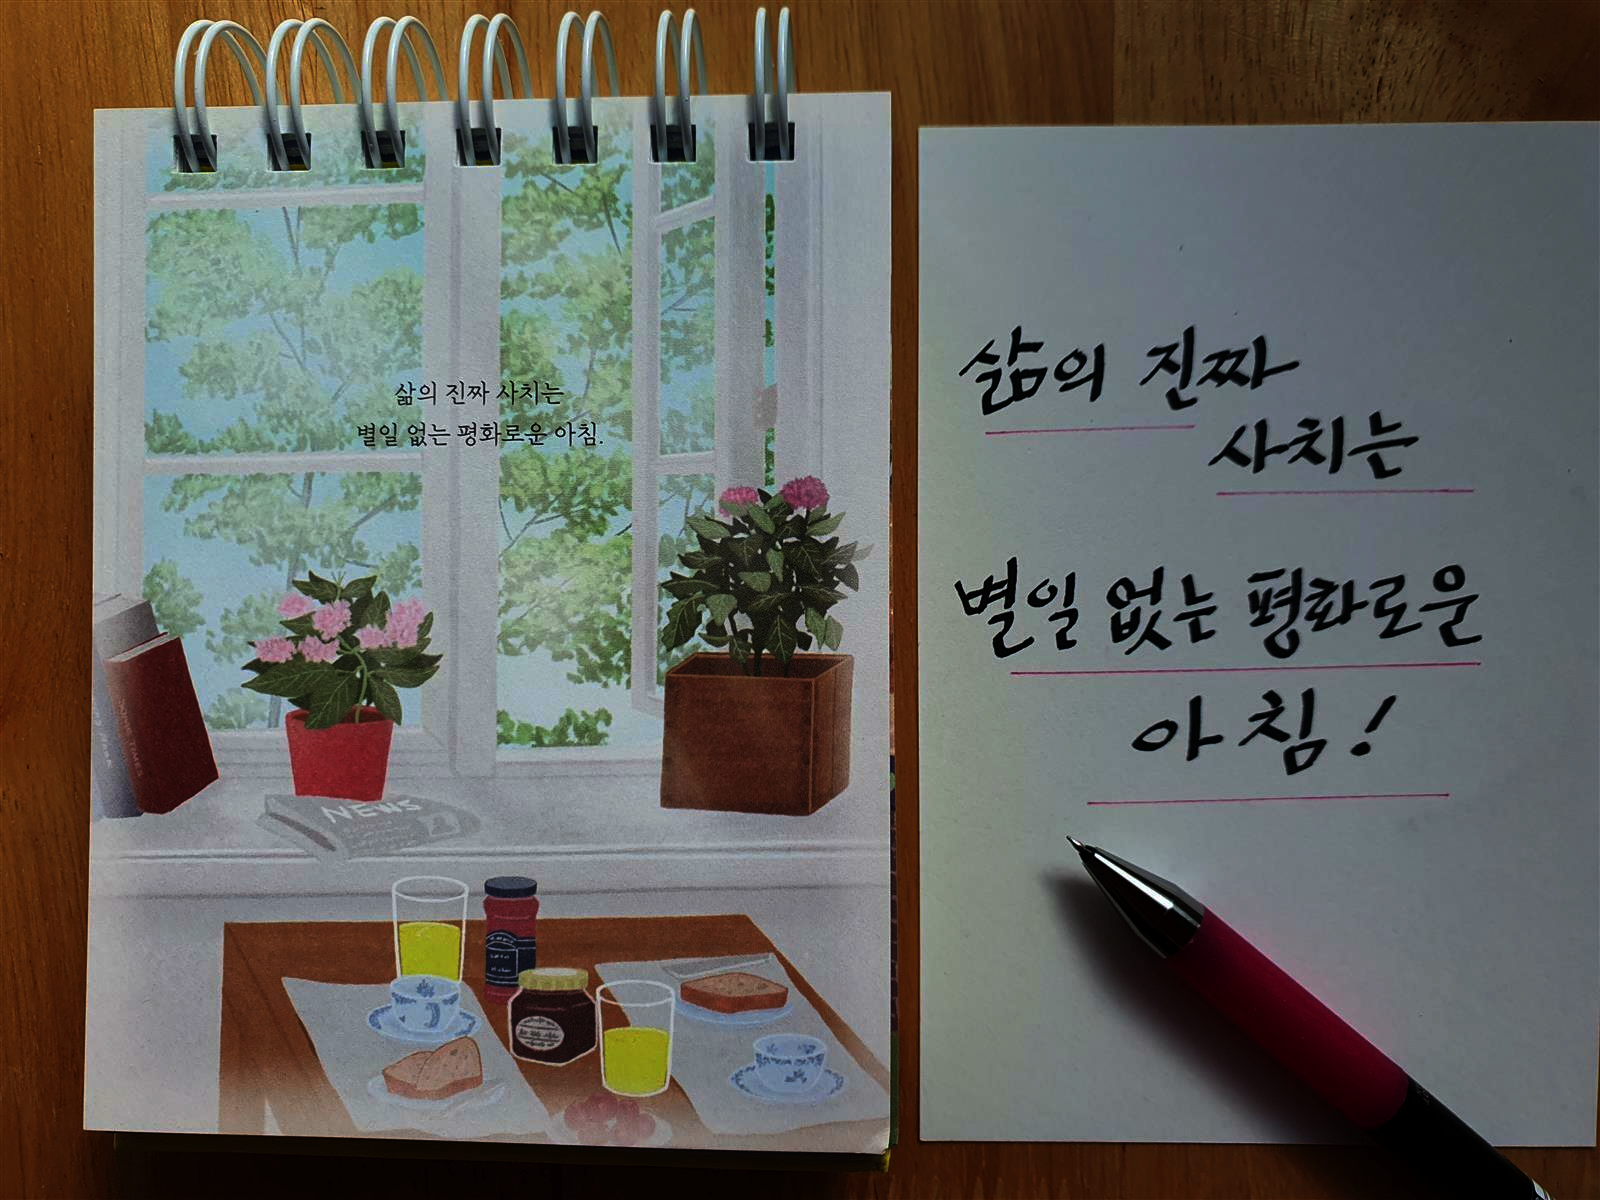 삶의 진짜 사치는
별일 없는 평화로운 아침.
NEWS
삶의 진짜
사치는
별일 없는 평화로운
아침!